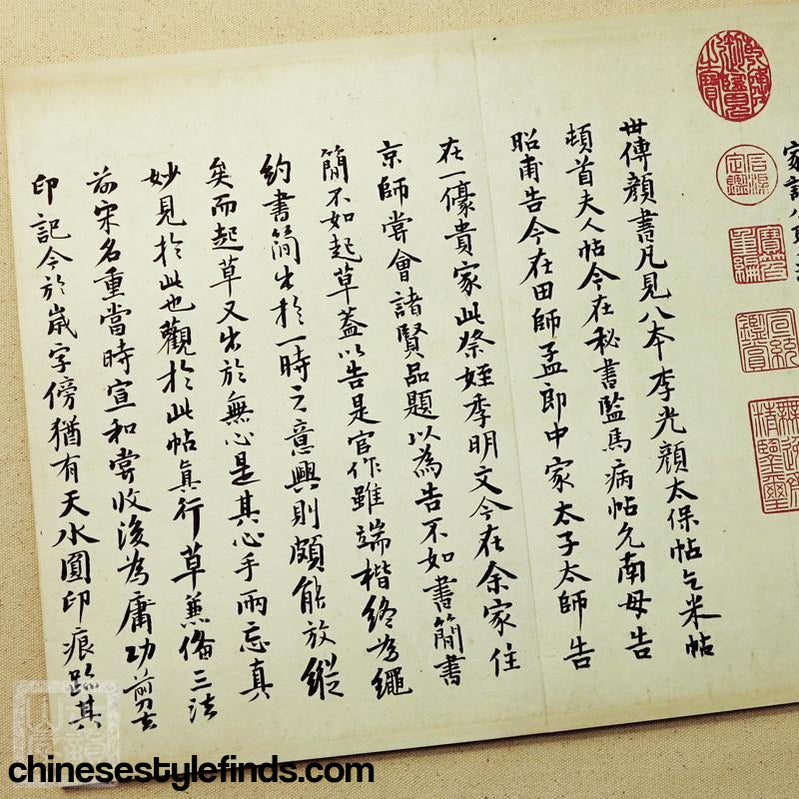 世傳顏書凡見八本李光顏太保帖乞米帖
頓首夫人帖今在秘書監馬病帖允南母告
昭甫告今在田師孟郎中家太子太師告
在一豪貴家此祭姪季明文今在余家住
京師嘗會諸賢品題以為告不如書簡書
簡不如起草蓋以告是官作雖端楷終為繩
約書簡出於一時之意興則頗能放縱
矣而起草又出於無心是其心手兩忘真
妙見於此也觀於此帖真行草兼備三法
前宋名重當時宣和嘗收後為庸功剪去
印記今於歲字傍猶有天水圓印痕跡其
乾隆御覽之寶
石渠定鑑
寶笈重編
chinesestylefinds.com